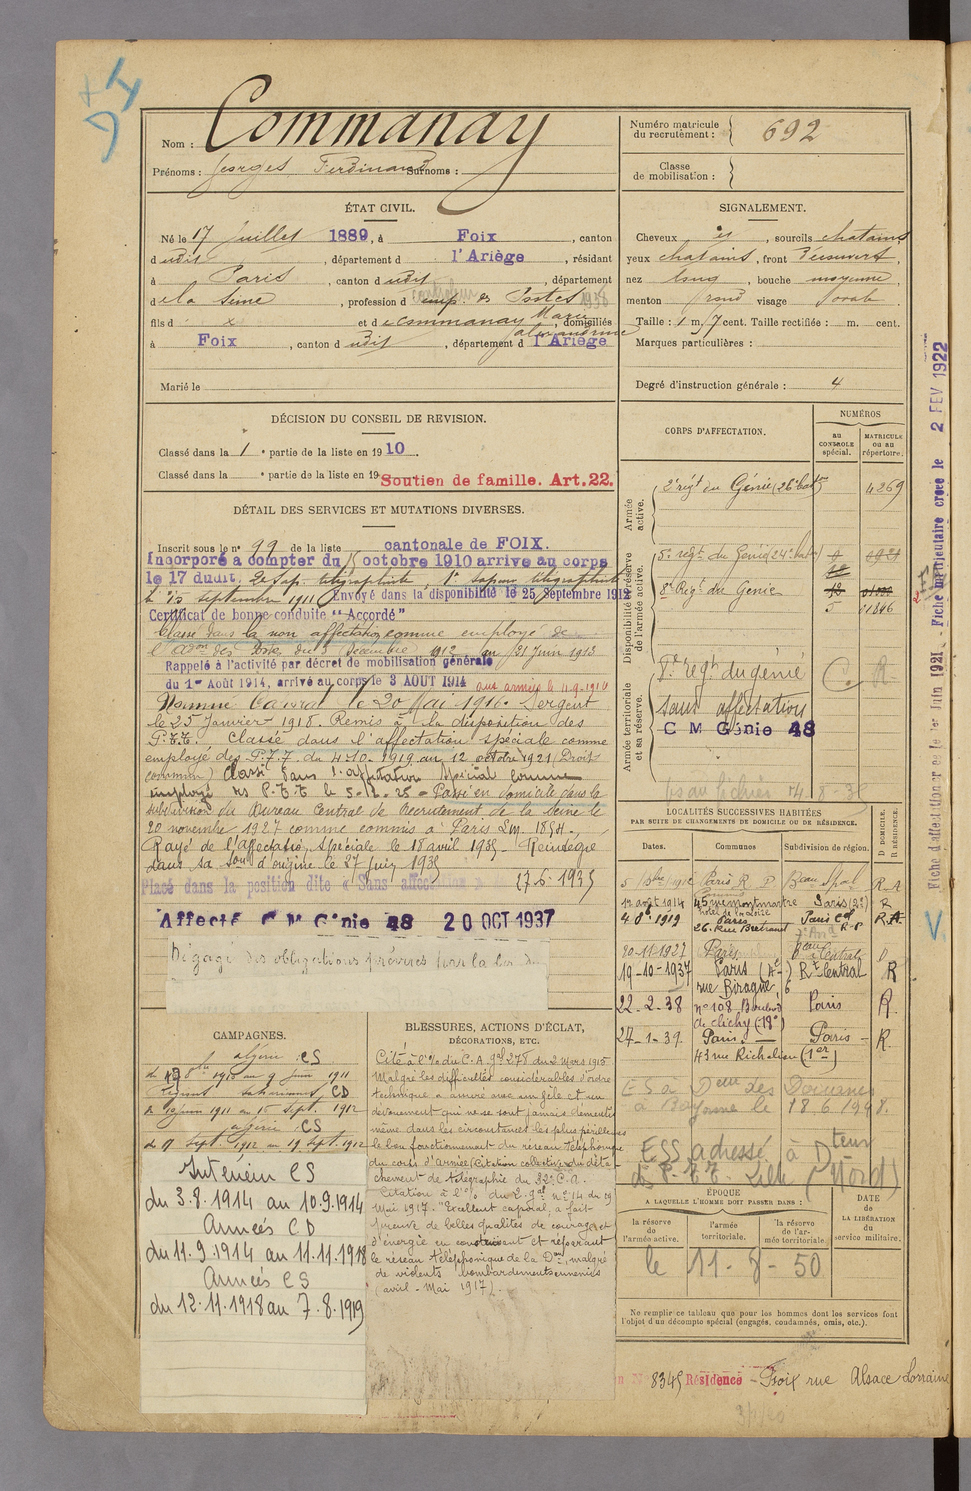 Nom : Commanay
Prénoms : Georges Ferdinand Surnoms :
Numéro matricule du recrutement : 692
Classe de mobilisation :
ÉTAT CIVIL.
Né le 17 juillet 1889, à Foix, canton
dudit, département d l'Ariège, résidant
à Paris, canton dudit, département
de la Seine, profession d emp. des Postes 1938
fils d x et de Commanay Marie, domiciliés
Alexandrine
à Foix, canton dudit, département d l'Ariège
Marié le
SIGNALEMENT.
Cheveux et, sourcils chatains
yeux chatains, front découvert,
nez long, bouche moyenne
menton rond visage ovale
Taille : 1 m. 7 cent. Taille rectifiée : m. cent.
Marques particulières :
Degré d'instruction générale : 4
DÉCISION DU CONSEIL DE REVISION.
Classé dans la 1e partie de la liste en 1910.
Classé dans la e partie de la liste en 19
Soutien de famille. Art. 22.
DÉTAIL DES SERVICES ET MUTATIONS DIVERSES.
Inscrit sous le n° 99 de la liste cantonale de FOIX.
Incorporé a compter du 15 octobre 1910 arrive au corps
le 17 dudit, 2e Sap. télégraphiste, 1er sapeur télégraphiste
le 25 septembre 1911 Envoyé dans la disponibilité le 25 Septembre 1912
Certificat de bonne conduite "Accordé"
Classé dans la non affectation comme employé de
l'Adon des Postes du 3 Décembre 1912 au 21 Juin 1913
Rappelé à l'activité par décret de mobilisation générale
du 1er Août 1914, arrivé au corps le 3 AOUT 1914 aux armées le 11-9-1914
Nommé Caporal le 20 Mai 1916. Sergent
le 25 Janvier 1918. Remis à la disposition des
P.T.T., Classé dans l'affectation spéciale comme
employé des P.T.T. du 4-10-1919 au 12 octobre 1921 (Droit
commun) Classé dans l'affectation spéciale comme
employé des P.T.T le 5-2-25 = Passé en domicile dans la
subdivision du Bureau Central de Recrutement de la Seine le
20 novembre 1927 comme commis à Paris
Rayé de l'affectation spéciale le 18 avril 1935 - Réintégré
dans sa son d'origine le 27 juin 1935
Placé dans la position dite "Sans affectation" 27.6.1935
Affecté C M Génie 48 20 OCT 1937
Dégagé des obligations prévues par la loi du
CORPS D'AFFECTATION.
NUMÉROS
au CONTROLE spécial.
MATRICULE ou au répertoire.
Armée active.
2e régt du Génie (26e baton) 4269
Disponibilité et réserve de l'armée active.
5e régt du Génie (24e baton)
8e Régt du Génie
5 01846
Armée territoriale et sa réserve.
7e régt du génie
Sans affectation
C M Génie 48
LOCALITÉS SUCCESSIVES HABITÉES
PAR SUITE DE CHANGEMENTS DE DOMICILE OU DE RÉSIDENCE.
Dates. Communes Subdivision de région. D DOMICILE. R RÉSIDENCE.
Paris R.P Beau Spal R.A
12 août 1914 45 rue Montmartre Paris (2e) R
4 8e 1919 Paris Paris Cal R.A.
26. Rue Bertrand
20-11-1927 Paris Beau Central D
19-10-1937 Paris (4e) Rt Central R
rue Biragne, 6
22-2-38 n° 108 Boulevard Paris R.
de Clichy (18e)
27-1-39. Paris. Paris R.
43 rue Richelieu (1er)
ES à Deur des Douanes
à Bayonne le 18.6.1948.
ESS adressé à Dteur
des P.T.T. Lille (Nord)
ÉPOQUE
A LAQUELLE L'HOMME DOIT PASSER DANS :
la réserve de l'armée active.
l'armée territoriale.
la réserve de l'armée territoriale.
DATE DE LA LIBÉRATION du service militaire.
le 11-8-50
Ne remplir ce tableau que pour les hommes dont les services font
l'objet d'un décompte spécial (engagés, condamnés, omis, etc.).
CAMPAGNES.
Algérie CS
du 8bre 1910 au 9 Juin 1911
Régions sahariennes CD
du 10 juin 1911 au 16 Sept. 1912
Algérie CS
du 17 Sept. 1912 au 19 Sept. 1912
Intérieur CS
du 3.8.1914 au 10.9.1914
Armées CD
du 11.9.1914 au 11.11.1918
Armées CS
du 12.11.1918 au 7.8.1919
BLESSURES, ACTIONS D'ÉCLAT,
DÉCORATIONS, ETC.
Cité à l'O/ du C.A. gal 278 du 2 Mars 1915
Malgré les difficultés considérables d'ordre
technique a assuré avec un zèle et un
dévouement qui ne se sont jamais démentis
même dans les circonstances les plus périlleuses
le bon fonctionnement du réseau Téléphonique
du corps d'armée (Citation collective du déta-
chement de télégraphie du 32e C.A.
Citation à l'O/ du R. gal n° 14 du 19
Mai 1917. "Excellent caporal, a fait
preuve de belles qualités de courage et
d'énergie en construisant et réparant
le réseau téléphonique de la Don, malgré
de violents bombardements ennemis
(avril - Mai 1917).
8345 Résidence - Foix rue Alsace Lorraine
Fiche d'affectation créée le 1er Juin 1921. - Fiche créée le 2 FEV 1922